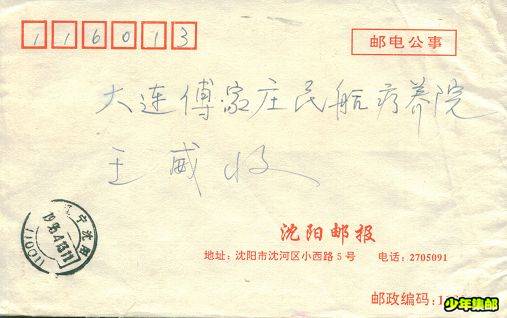 116013
邮电公事
大连傅家庄民航疗养院
王威收
辽宁沈阳
1995.4.13.11
(110011)
沈阳邮报
地址：沈阳市沈河区小西路5号 电话：2705091
邮政编码：1
少年集邮